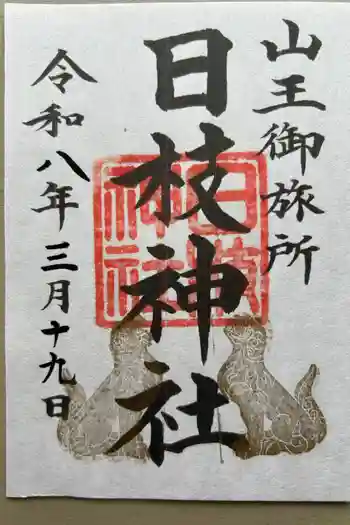 山王御旅所
日枝神社
令和八年三月十九日
日枝神社